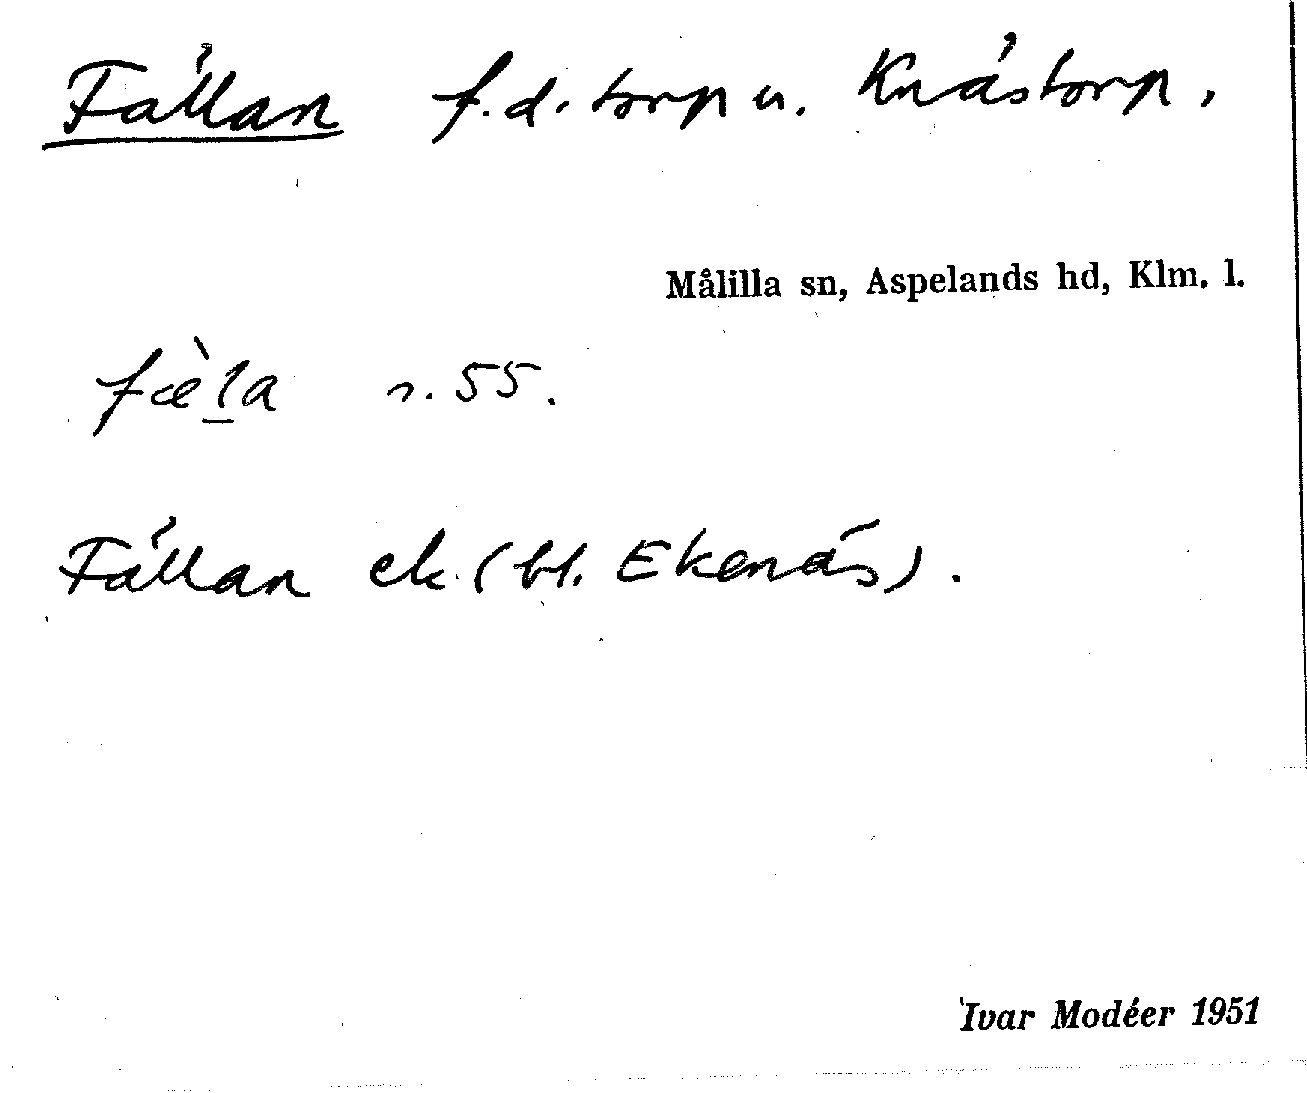 Fällan f.d. torp u. Knästorp,
Målilla sn, Aspelands hd, Klm. l.
fæ̀l̲a r. 55.
Fällan ek. (bl. Ekenäs).
Ivar Modéer 1951